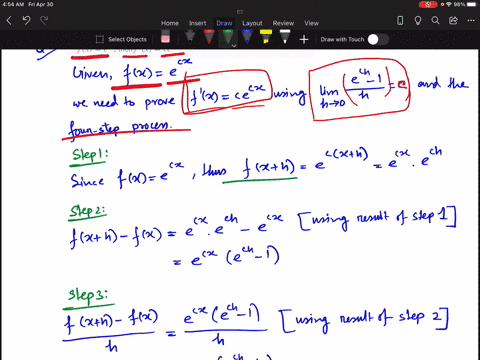 4:54 AM Fri Apr 30
98%
Home Insert Draw Layout Review View
Select Objects
Draw with Touch
Given, f(x) = e^{cx}
we need to prove f'(x) = ce^{cx} using lim_{h→0} (e^{ch}-1 / h) = c and the
four-step process.
Step 1:
Since f(x) = e^{cx}, thus f(x+h) = e^{c(x+h)} = e^{cx} . e^{ch}
Step 2:
f(x+h) - f(x) = e^{cx} . e^{ch} - e^{cx} [using result of step 1]
= e^{cx} (e^{ch} - 1)
Step 3:
f(x+h) - f(x) / h = e^{cx} (e^{ch} - 1) / h [using result of step 2]